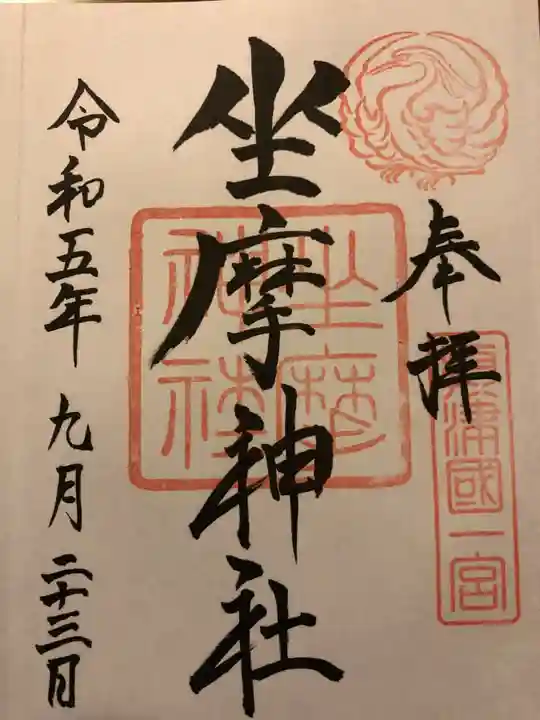 奉拝
攝津國一宮
坐摩神社
坐摩
神社
令和五年 九月 二十三日